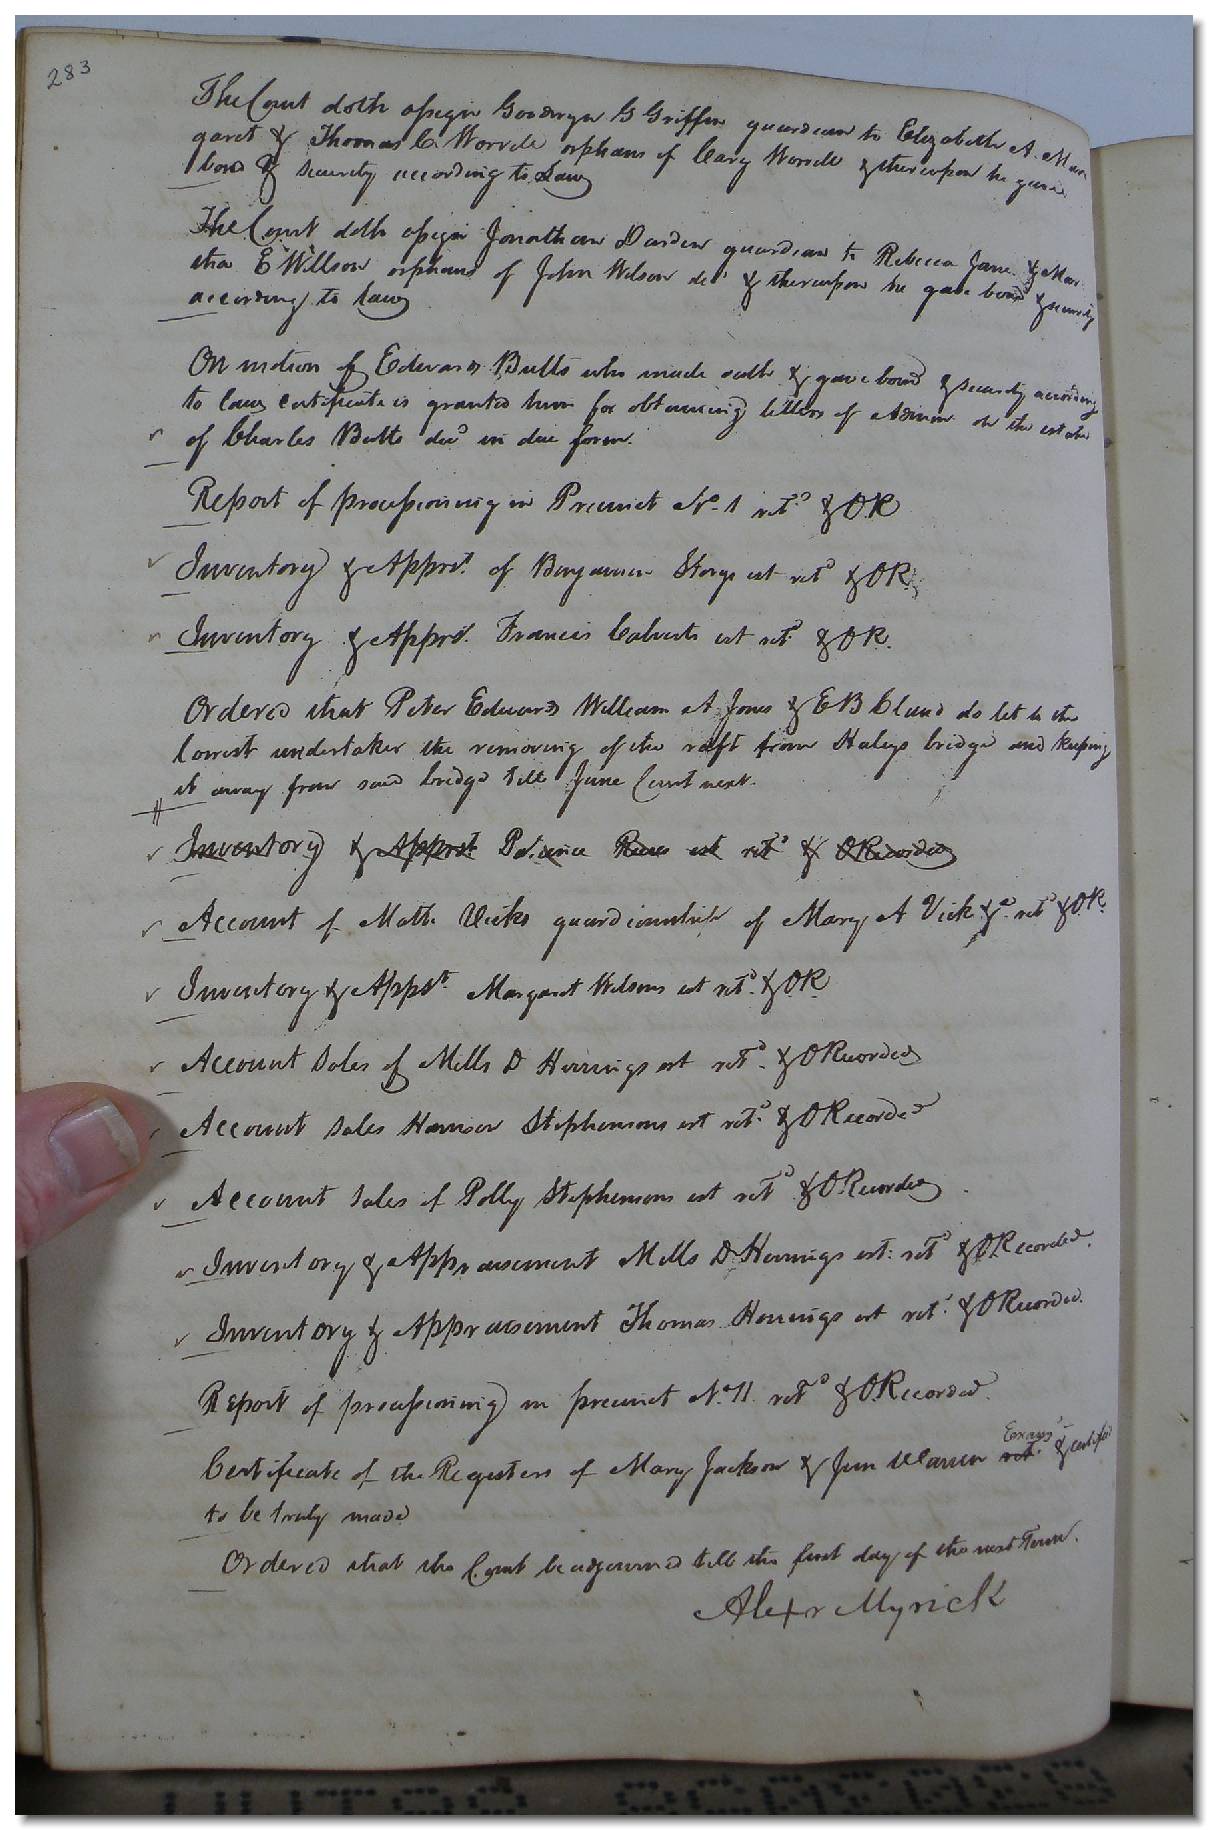 283
The Court doth assign Goodwyn G Griffin guardian to Elizabeth A. Mar
garet & Thomas C. Worrell orphans of Cary Worrell & thereupon he gave
bond & security according to Law
The Court doth assign Jonathan Darden guardian to Rebecca Jane & Mar
tha E Willson orphans of John Wilson decd & thereupon he gave bond & security
according to Law
On motion of Edward Butts who made oath & gave bond & security according
to law certificate is granted him for obtaining letters of Admon on the estate
of Charles Butts decd in due form.
Report of processioning in Precinct No. 1 retd & OR
Inventory & Apprt. of Benjamin Storys est retd & OR
Inventory & Apprt. Francis Calverts est retd & OR.
Ordered that Peter Edwards William A. Jones & E B Claud do let to the
lowest undertaker the removing of the raft from Haleys bridge and keeping
it away from said bridge till June Court next.
Inventory & Apprt. est retd & ORecorded
Account of Math Vicks guardianship of Mary A Vick &c. retd & OR.
Inventory & Apprt. Margaret Wilsons est retd. & OR
Account Sales of Mills D Herrings est retd. & ORecorded
Account Sales Stephensons est retd. & ORecorded
Account Sales of Polly Stephensons est retd & ORecorded.
Inventory & Appraisement Mills D Herrings est: retd & ORecorded.
Inventory & Appraisement Thomas Herrings est retd. & ORecorded.
Report of processioning in precinct No. 11. retd & ORecorded.
Certificate of the Registers of Mary Jackson & Jim Warren Examd ret. & certified
to be truly made
Ordered that the Court be adjourned till the first day of the next Term.
Alexr Myrick